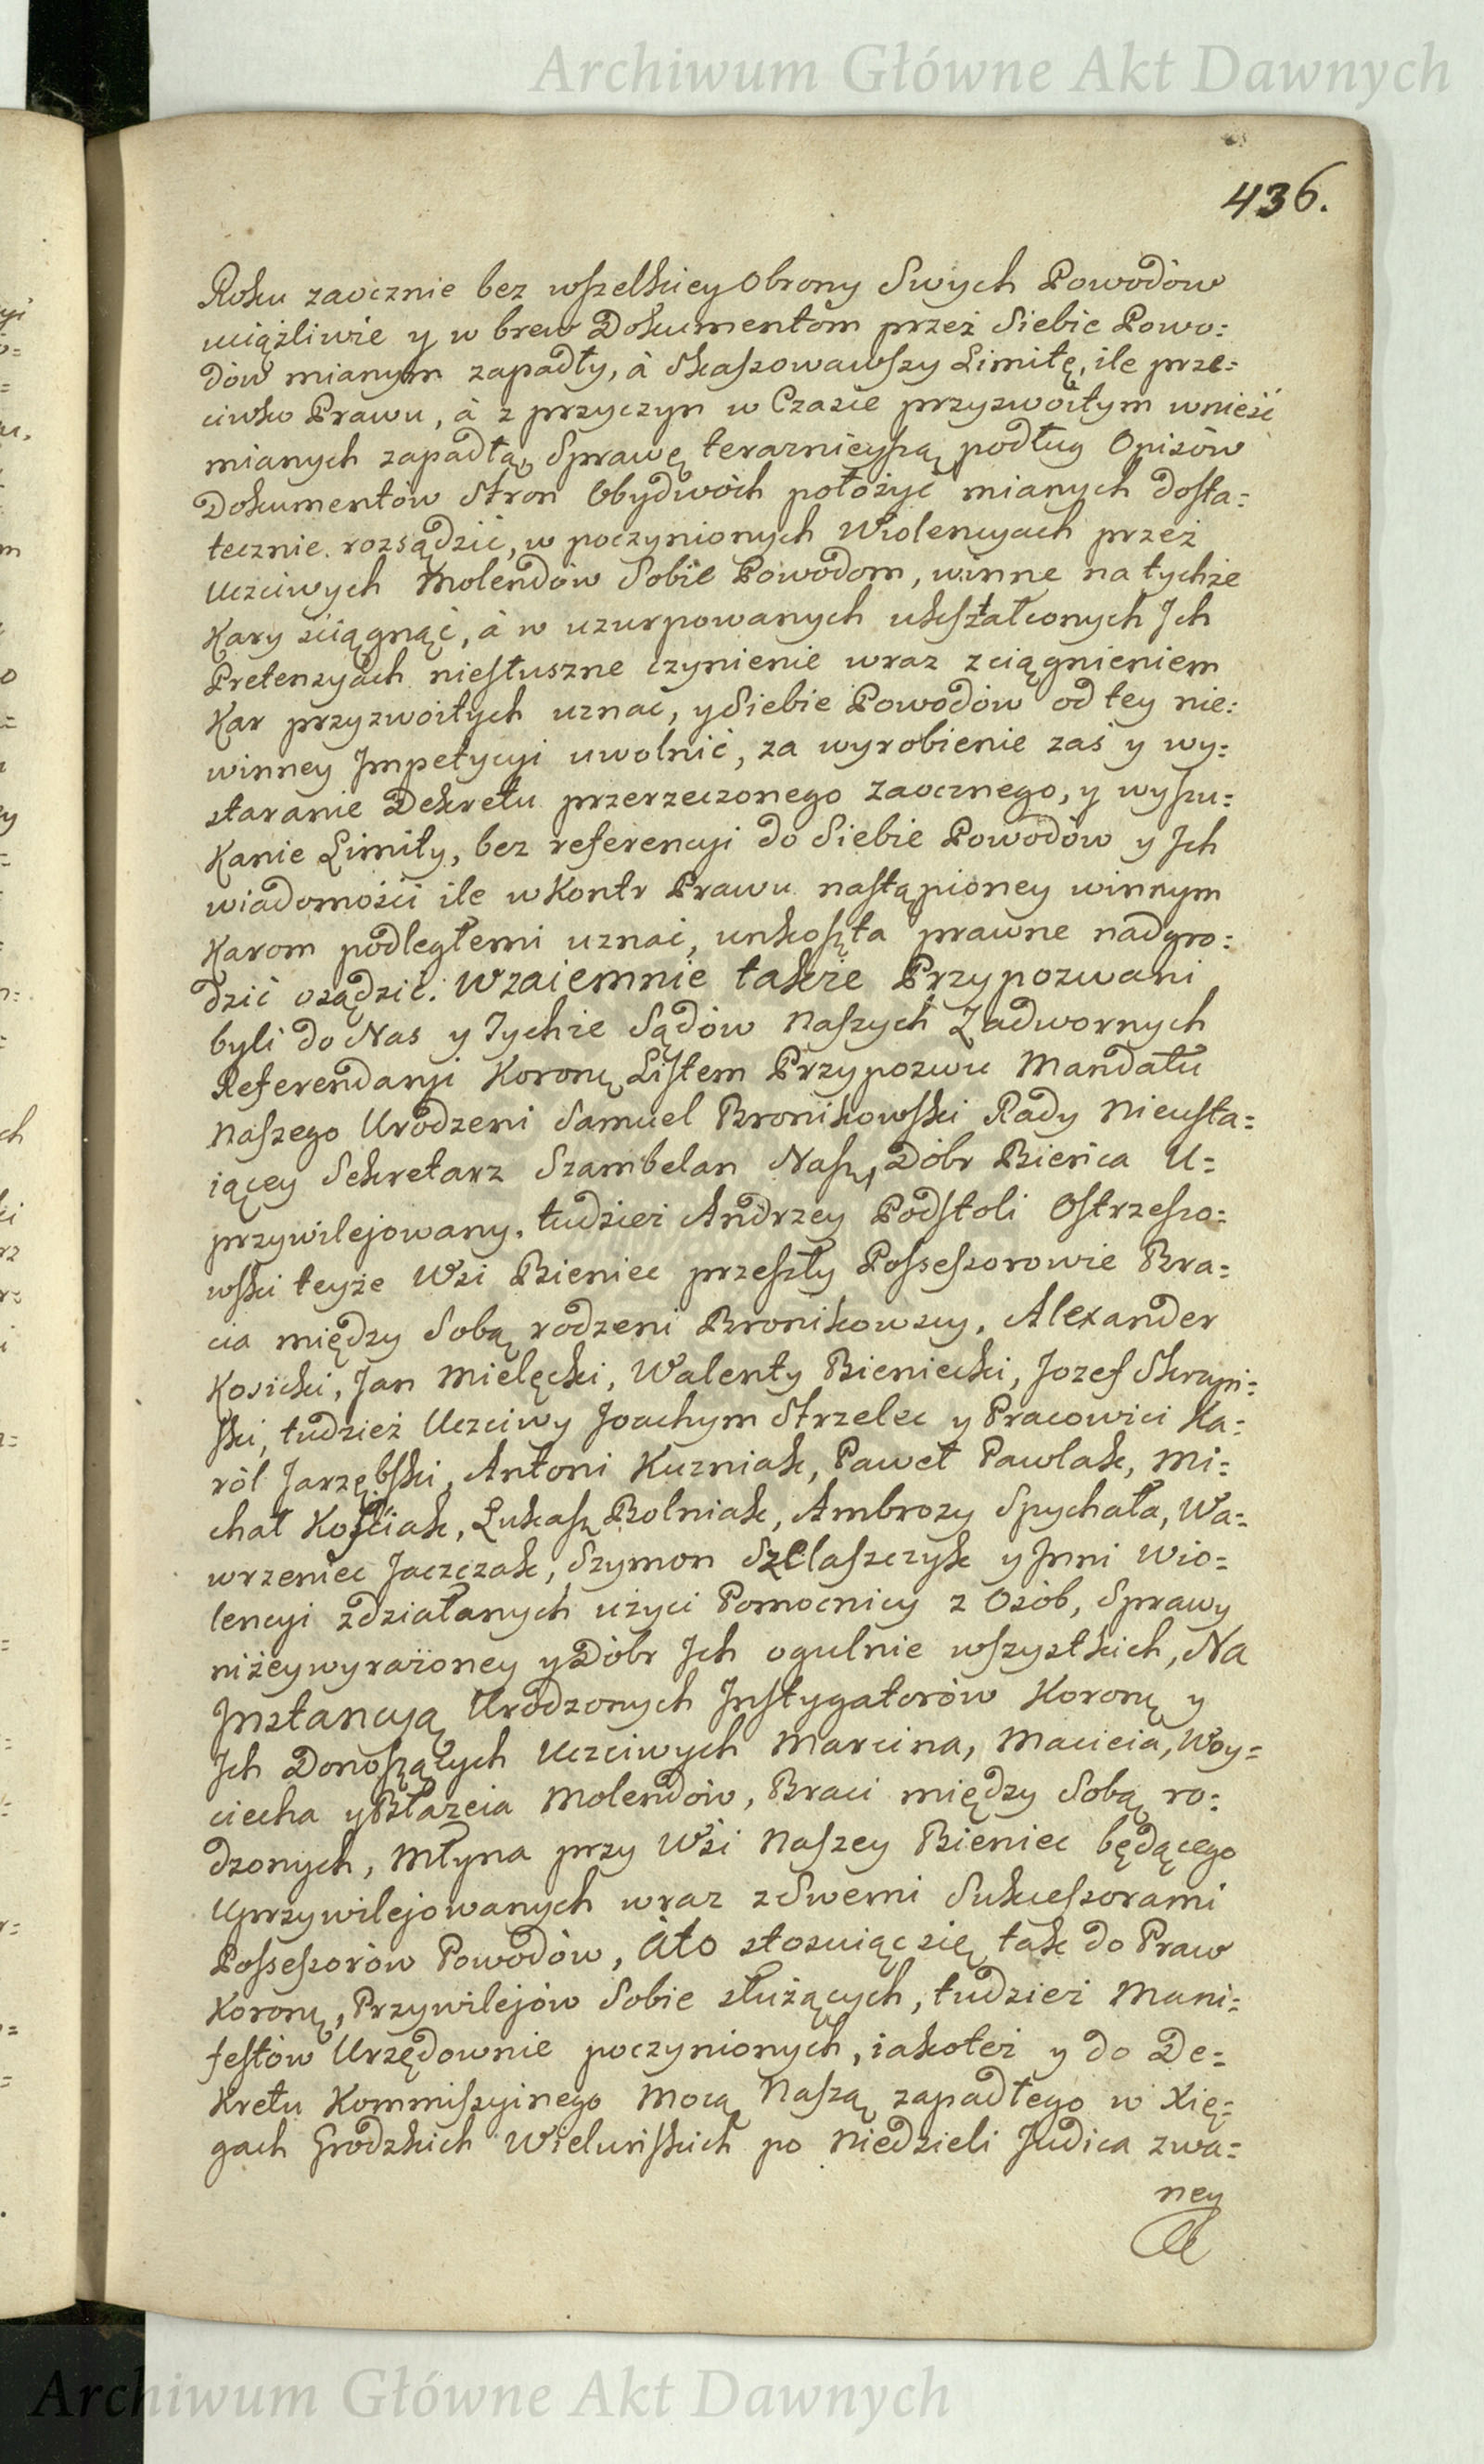 Archiwum Główne Akt Dawnych
436.
Roku zaocznie bez wszelkiey Obrony Swych Powodów
uciążliwie y w brew Dokumentom przez Siebie Powo=
dów mianym zapadły, à Skassowawszy Limitę, ile prze=
ciwko Prawu, à z przyczyn w Czasie przyzwoitym wnieść
mianych zapadłą, Sprawę teraznieyszą podług Opisów
Dokumentów Stron Obydwóch położyć mianych dosta=
tecznie rozsądzić, w poczynionych Wiolencyach przez
Uczciwych Molendów Sobie Powodom, winne na tychże
Kary sciągnąć, à w uzurpowanych ukształconych Jch
Pretensyach niesłuszne czynienie wraz zciągnieniem
Kar przyzwoitych uznać, y Siebie Powodów od tey nie=
winney Jmpetycyi uwolnić, za wyrobienie zaś y wy=
staranie Dekretu przerzeczonego Zaocznego, y wyszu=
kanie Limity, bez referencyi do Siebie Powodów y Jch
wiadomości ile w Kontr Prawu nastąpioney winnym
Karom podległemi uznać, unkoszta prawne nadgro=
dzić osądzić. Wzaiemnie także Przypozwani
byli do Nas y Tychże Sądów Naszych Zadwornych
Referendaryi Koronꝫ Listem Przypozwu Mandatu
Naszego Urodzeni Samuel Bronikowski Rady Nieusta=
iącey Sekretarz Szambelan Nasz, Dóbr Bieńca U=
przywilejowany, tudzież Andrzey Podstoli Ostrzeszo=
wski teyże Wsi Bieniec przeszły Possessorowie Bra=
cia między Sobą rodzeni Bronikowscy, Alexander
Kosicki, Jan Mielęcki, Walenty Bieniecki, Jozef Skrzpi=
ski, tudzież Uczciwy Joachym Strzelec y Pracowici Ka=
ról Jarzębski, Antoni Kuzniak, Paweł Pawlak, Mi=
chał Kościak, Łukasz Rolniak, Ambrozy Spychała, Wa=
wrzeniec Jaczczak, Szymon Szelaszczyk y Jnni Wio=
lencyi zdziałanych użyci Pomocnicy z Osób, Sprawy
niżeywyrażoney y Dóbr Jch ogulnie wszystkich, Na
Jnstancyą Urodzonych Jnstygatorów Koronꝫ y
Jch Donoszących Uczciwych Marcina, Macieia, Woy=
ciecha y Błażeia Molendów, Braci między Sobą ro=
dzonych, Młyna przy Wsi Naszey Bieniec będącego
Uprzywilejowanych wraz z Swemi Sukcessorami
Possessorów Powodów, àto stosuiąc się tak do Praw
Koronꝫ, Przywilejów Sobie służących, tudzież Mani=
festów Urzędownie poczynionych, iakoteż y do De=
kretu Kommissyinego Mocą Naszą zapadłego w Xię=
gach Grodzkich Wieluńskich po Niedzieli Judica zwa=
ney
Archiwum Główne Akt Dawnych